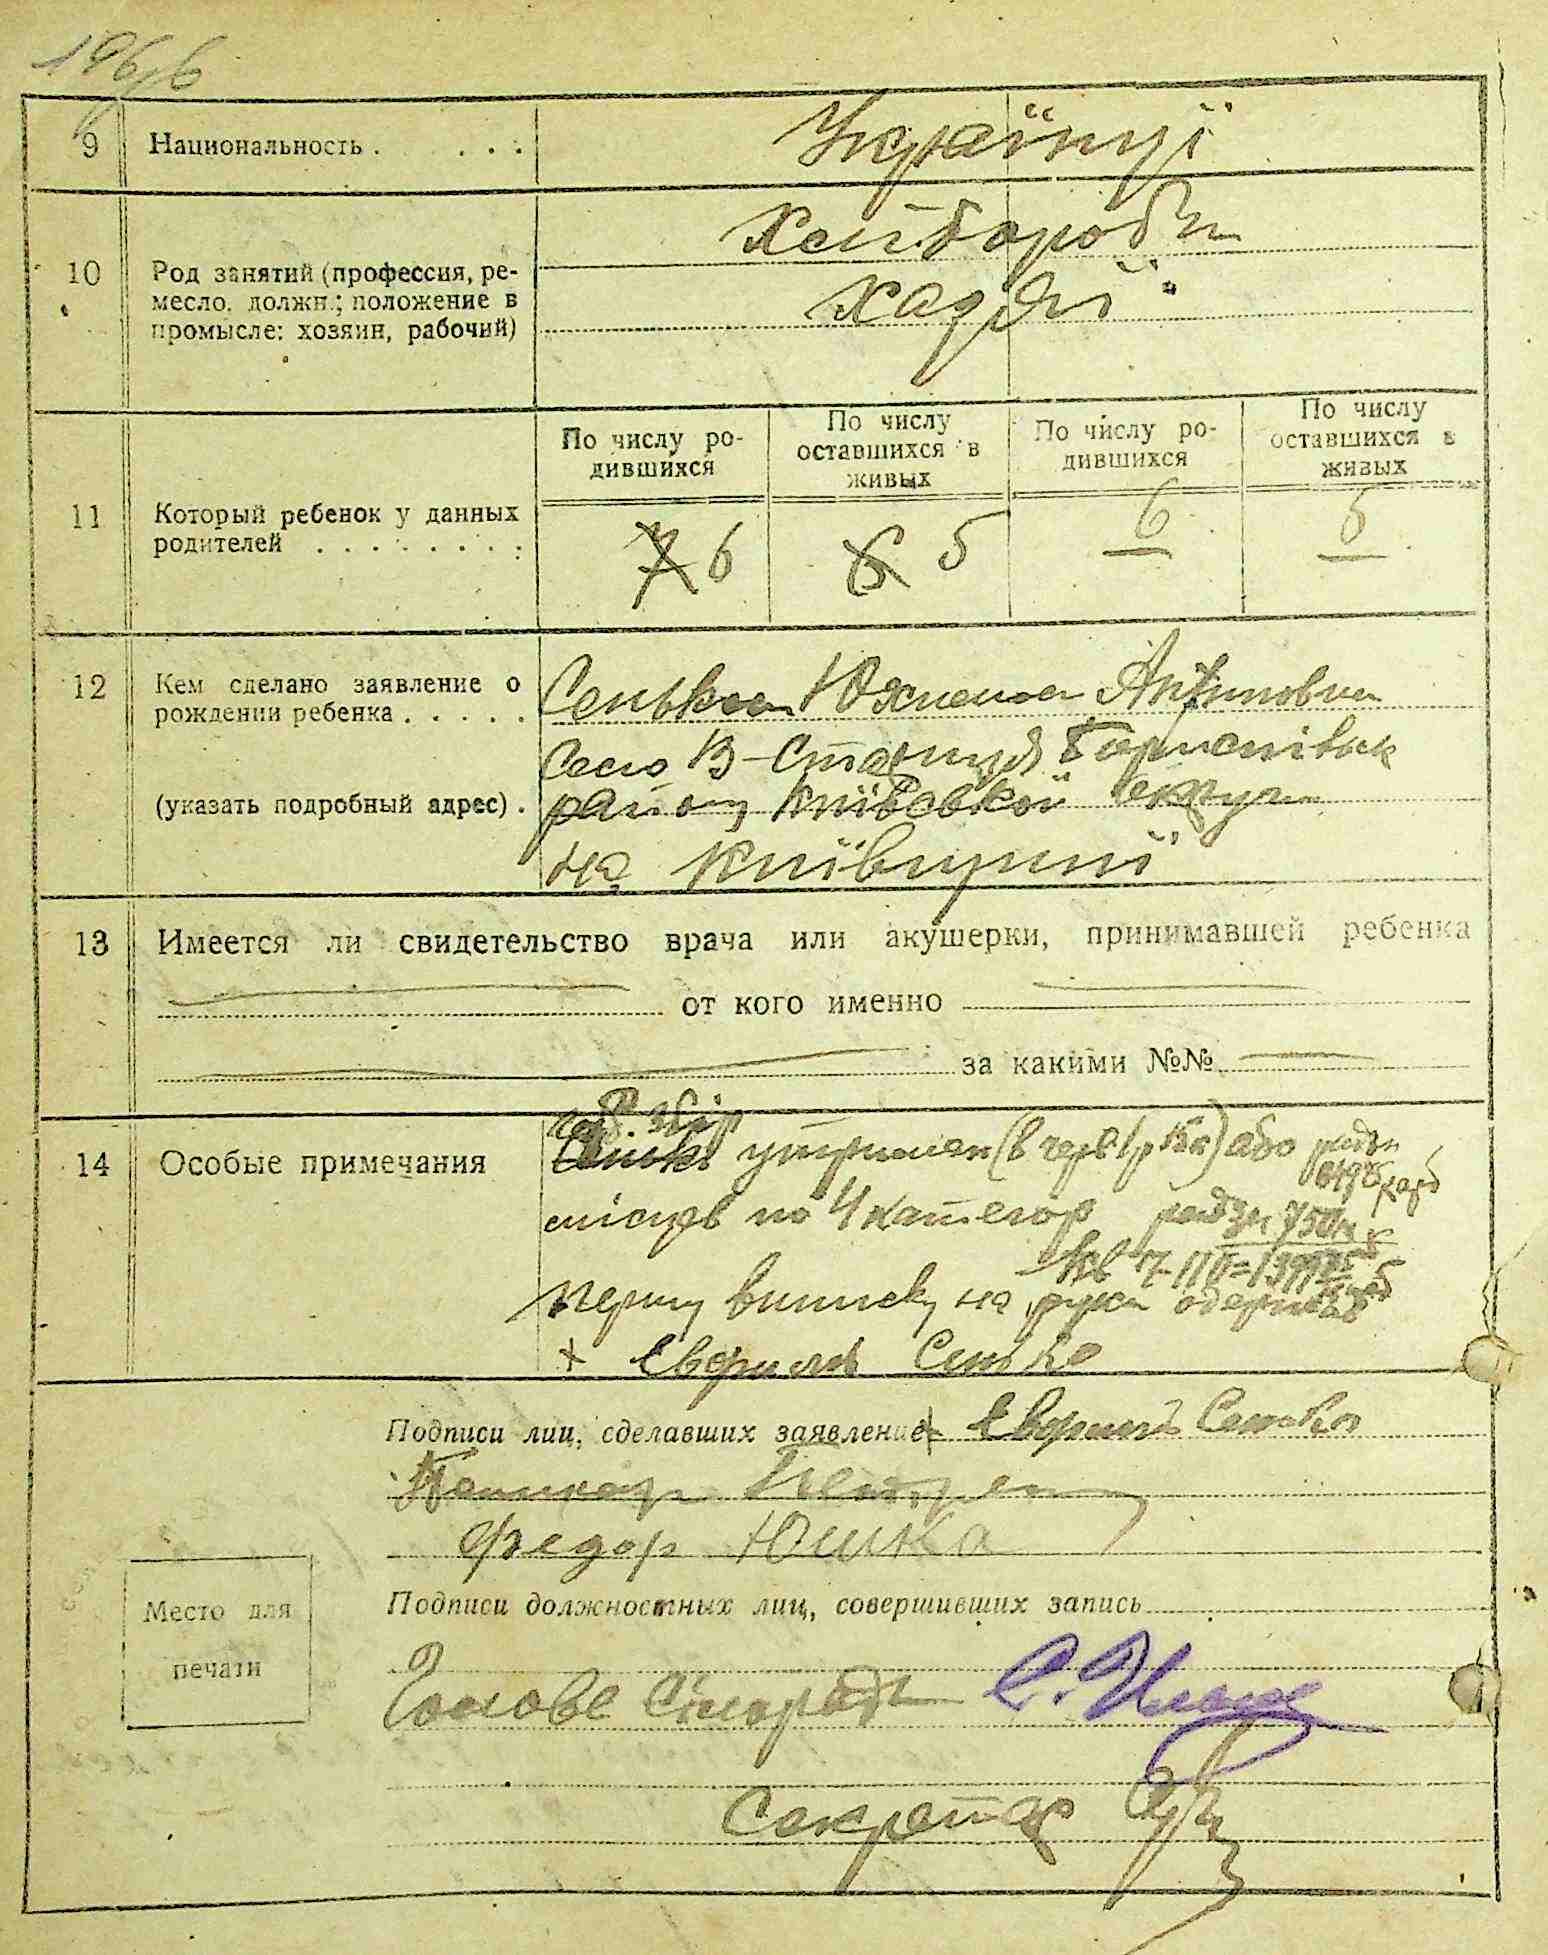 9 Национальность . . . . Українці
10 Род занятий (профессия, ре-
месло, должн.; положение в
промысле: хозяин, рабочий)
Хліборобы
Хазяї
11 Который ребенок у данных
родителей . . . . . . . .
По числу ро-
дившихся
По числу
оставшихся в
живых
По числу ро-
дившихся
По числу
оставшихся в
живых
7 6
6 5
6
5
12 Кем сделано заявление о
рождении ребенка . . . . .
(указать подробный адрес) .
Сенько
Село В-Стариця Бориспівськ
району Київської округи
на Київщині
13 Имеется ли свидетельство врача или акушерки, принимавшей ребенка
от кого именно
за какими №№
14 Особые примечания
або
місцев по 4 категор
першу виписку на руки одержав
Сенько
Подписи лиц, сделавших заявление Сенько
Петренко
Федор Юшка
Место для
печати
Подписи должностных лиц, совершивших запись
Голова Сільради
Секретар